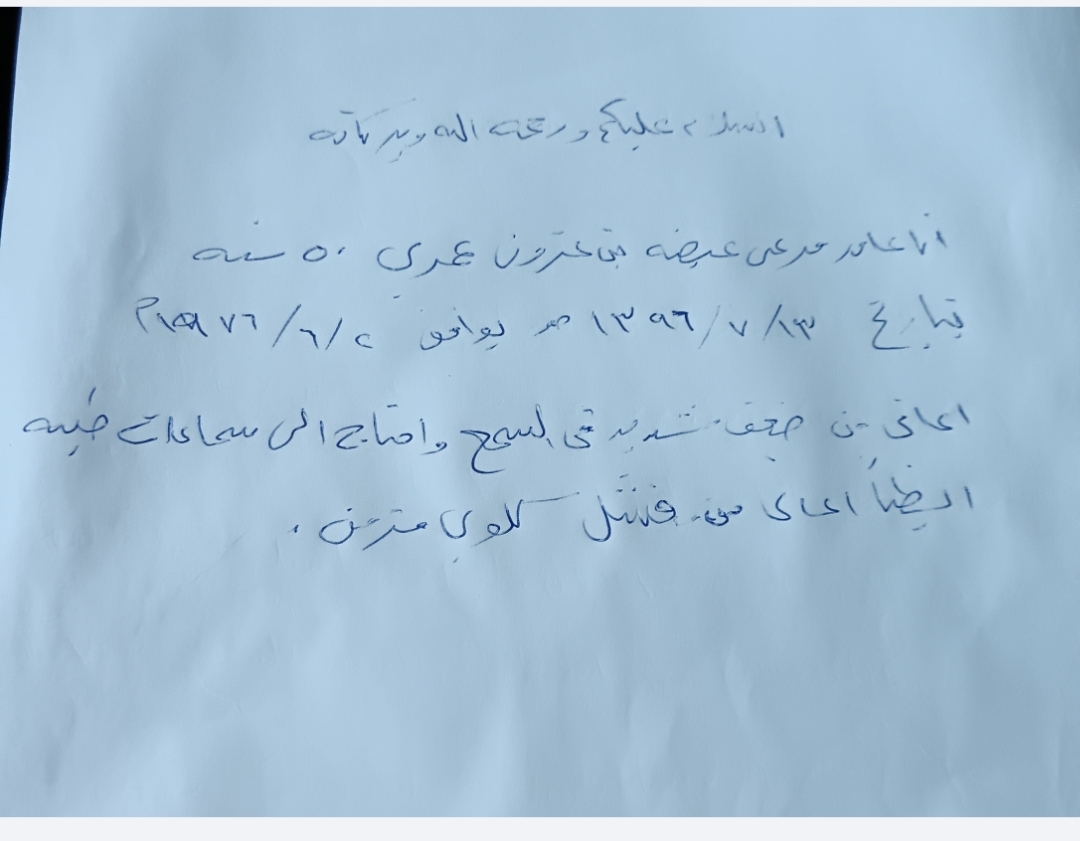 السلام عليكم ورحمة الله وبركاته
انا عامر مرعي عيضه بن عزون عمري ٥٠ سنه
بتاريخ ١٣٩٦/٧/١٣ هـ يوافق ١٩٧٦/٦/٢م
اعاني من ضعف شديد في السمع واحتاج الى سماعات طبيه
ايظاً اعاني من فشل كلوي مزمن .